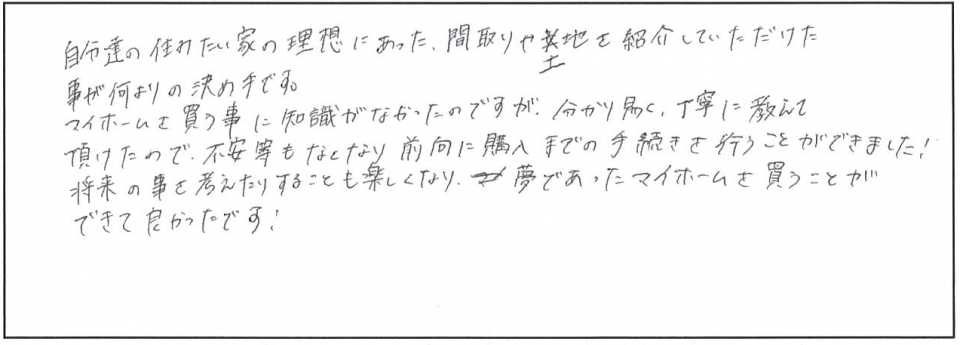 自分達の住みたい家の理想にあった、間取りや土地を紹介していただけた
事が何よりの決め手です。
マイホームを買う事に知識がなかったのですが、分かり易く、丁寧に教えて
頂けたので、不安等もなくなり前向に購入までの手続きを行うことができました!
将来の事を考えたりすることも楽しくなり、夢であったマイホームを買うことが
できて良かったです!